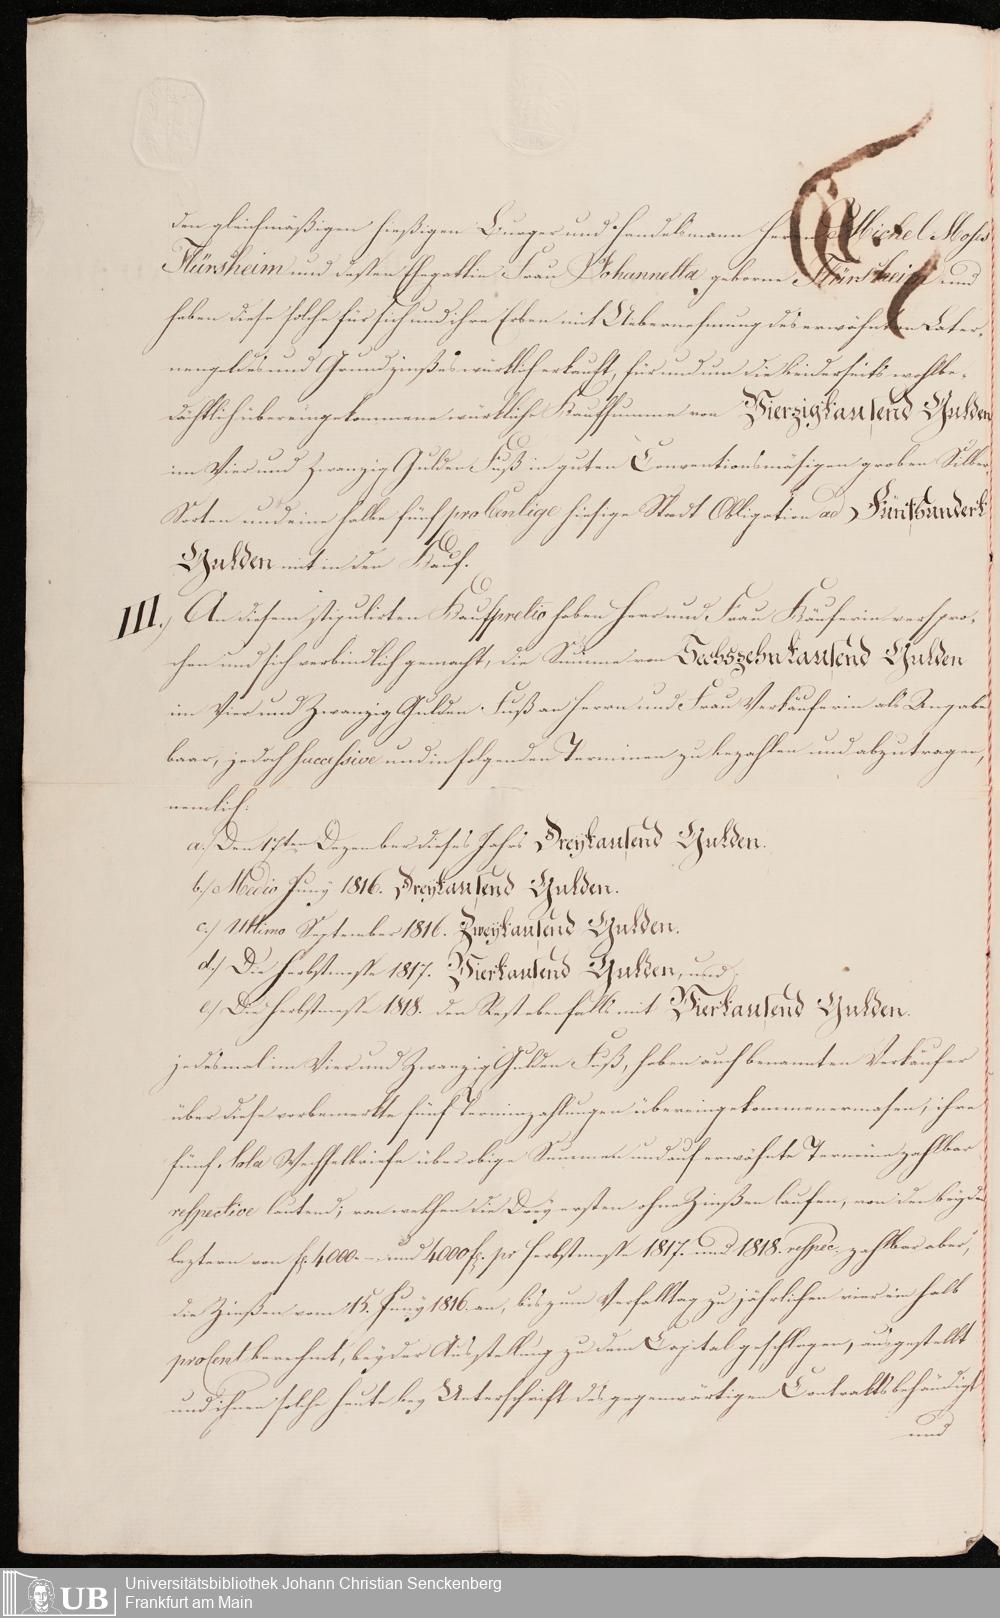 den gleichmäßigen hießigen Burger und Handelsmann Herrn Michel Moses
Flürsheim und dessen Ehegattin Frau Johannetta geborne Flürsheim und
haben diese solche für sich und ihre Erben mit Uebernehmung des erwähnten Later-
nengeldes und Grundzinßes würklich erkauft, für und um die beiderseits wohlbe-
dächtlich übereingekommene würkliche Kaufsumme von Vierzigtausend Gulden
im Vier und Zwanzig Gulden Fuß in guten Conventionsmäsigen groben Silber
Sorten und eine halbe fünf proCentige hiesige Stadt Obligation ad Fünfhundert
Gulden mit in den Kauf.
III.) An diesem stipulirten Kaufpretio haben Herr und Frau Käuferin verspro-
chen und sich verbindlich gemacht, die Summe von Sechszehntausend Gulden
im Vier und Zwanzig Gulden Fuß an Herrn und Frau Verkäuferin als Angabe
baar, jedoch successive und in folgenden Terminen zu bezahlen und abzutragen,
nemlich:
a.) Den 17ten Dezember dieses Jahrs Dreytausend Gulden.
b.) Medio Juny 1816. Dreytausend Gulden.
c.) Ultimo September 1816. Zweytausend Gulden.
d.) Die Herbstmesse 1817. Viertausend Gulden, und
e.) Die Herbstmesse 1818. den Rest ebenfalls mit Viertausend Gulden.
jedesmal im Vier und Zwanzig Gulden Fuß, haben auch benannten Verkäufer
über diese vorbemerkte fünf Terminzahlungen übereingekommenermasen, ihre
fünf Sola Wechselbriefe über obige Summen und auf erwähnte Termine zahlbar
respective lautend; von welchen die Drey ersten ohne Zinßen laufen, von den beyden
leztern von f. 4000.– und 4000 f. pr Herbstmesse 1817. und 1818. respec. zahlbar aber,
die Zinßen vom 15. Juny 1816. an, bis zum Verfalltag zu jährlichen vier ein halb
proCent berechnet, bey der Ausstellung zu dem Capital geschlagen, ausgestellt
und ihnen solche heute bey Unterschrift des gegenwärtigen Contrakts behändigt
und
UB
Universitätsbibliothek Johann Christian Senckenberg
Frankfurt am Main